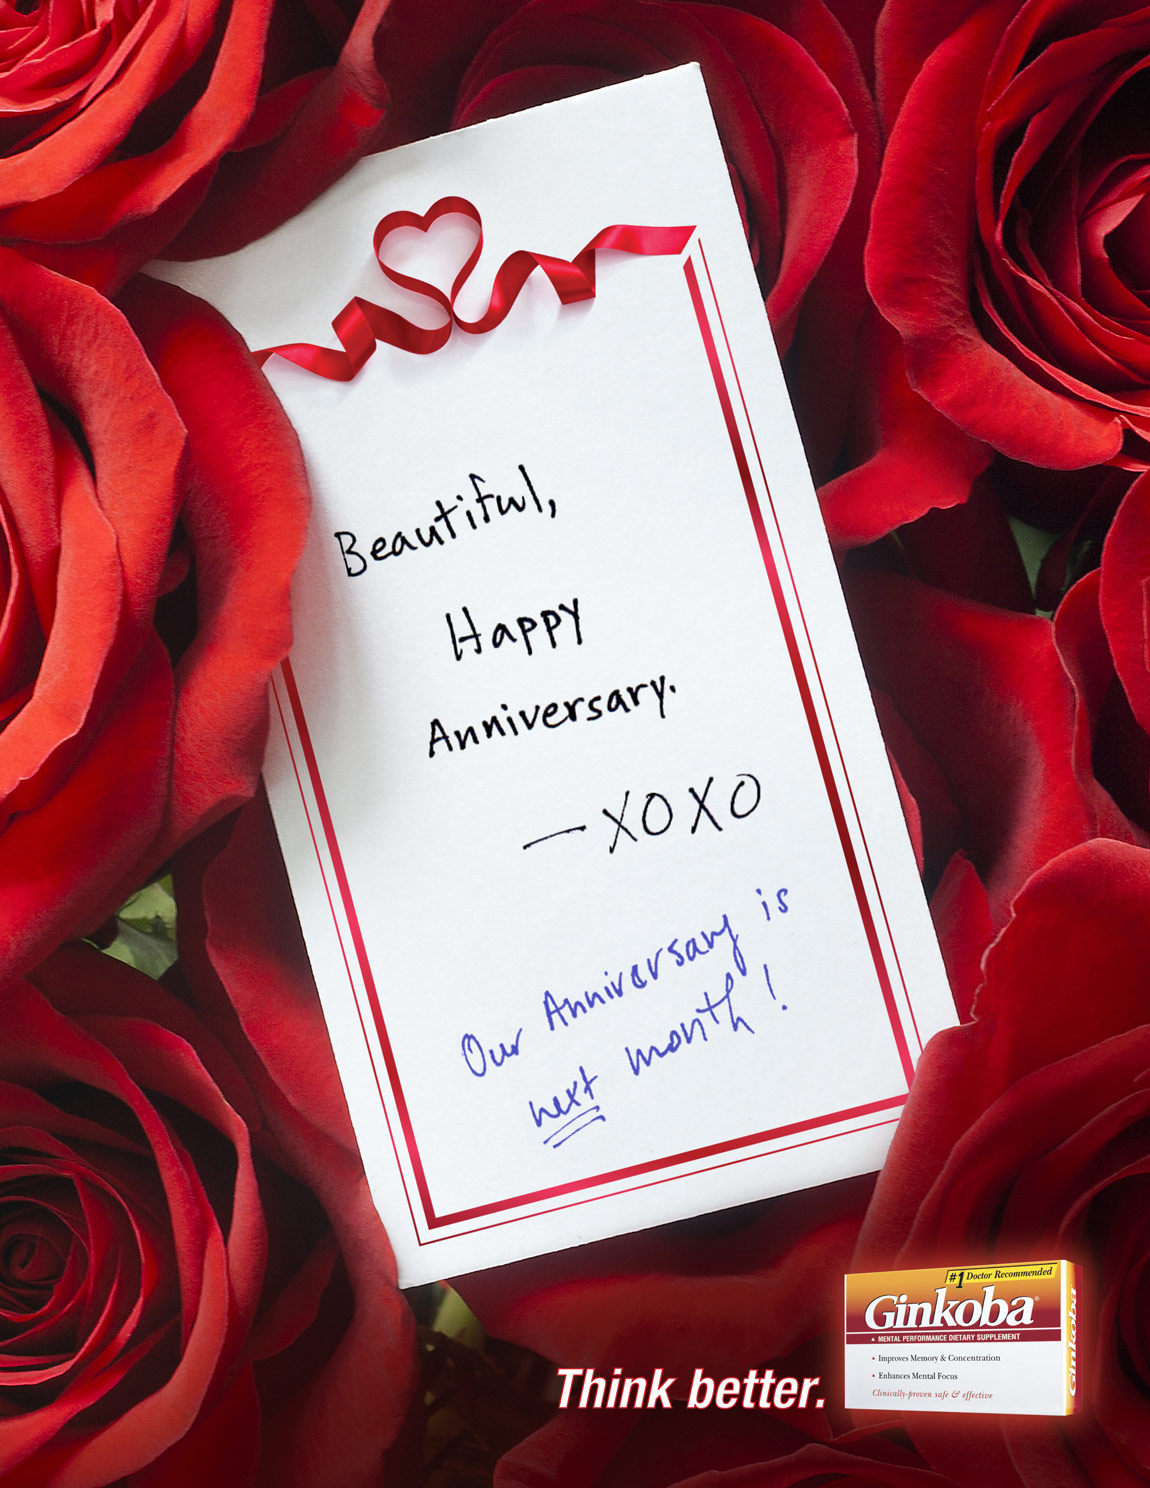 Beautiful,
Happy
Anniversary.
— XOXO
Our Anniversary is
next month!
Think better.
#1 Doctor Recommended
Ginkoba®
▲ MENTAL PERFORMANCE DIETARY SUPPLEMENT
▲ Improves Memory & Concentration
▲ Enhances Mental Focus
Clinically-proven safe & effective
Ginkoba